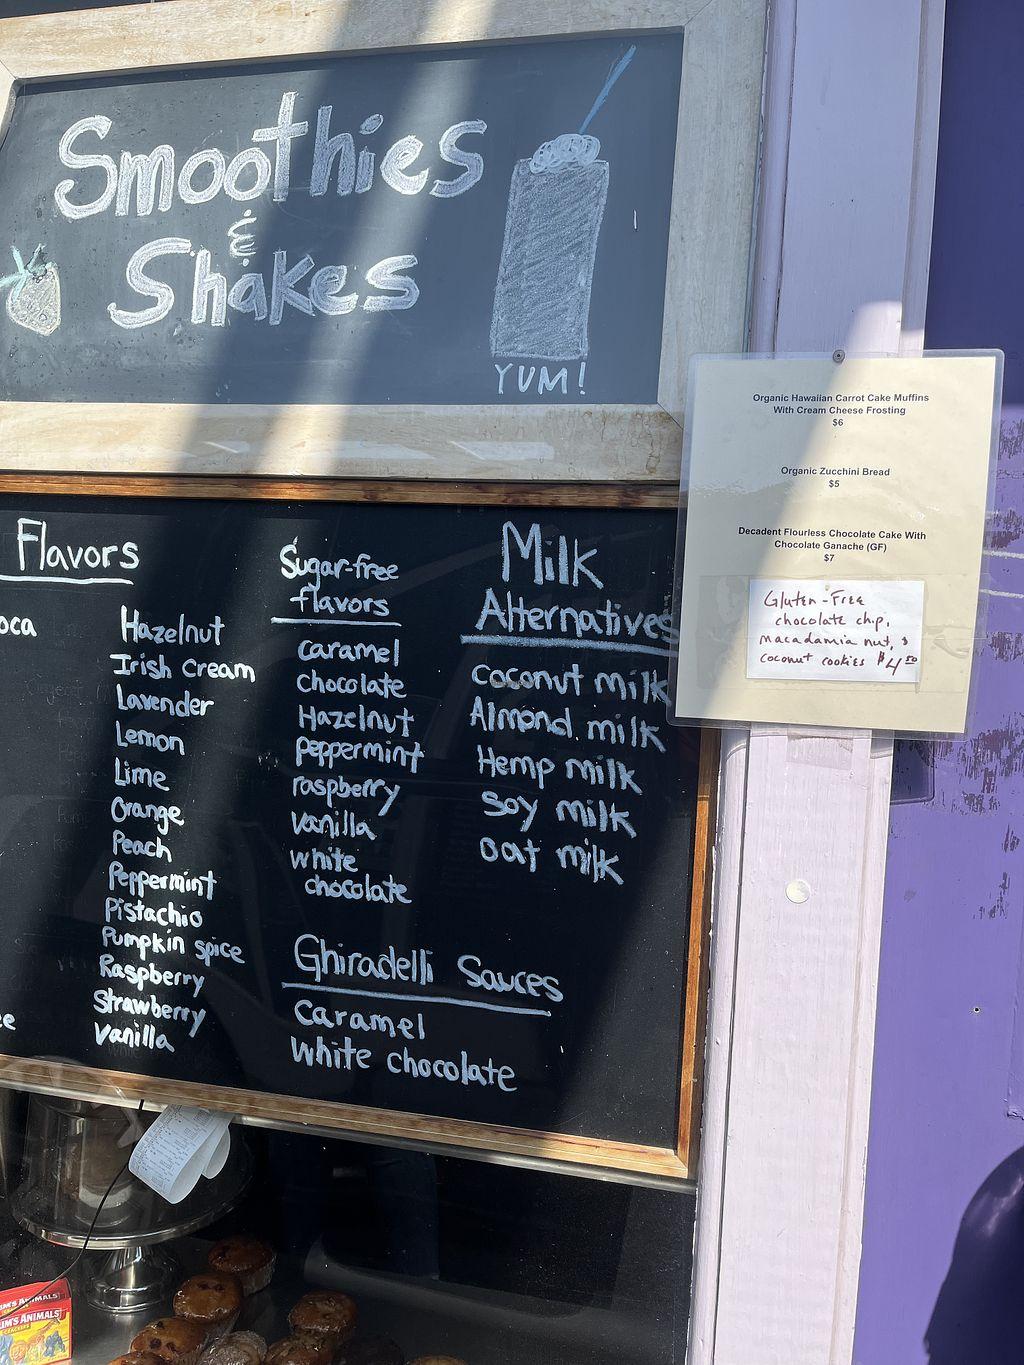 Smoothies
&
Shakes
YUM!
Flavors
Hazelnut
Irish Cream
Lavender
Lemon
Lime
Orange
Peach
Peppermint
Pistachio
Pumpkin spice
Raspberry
Strawberry
Vanilla
Sugar-free
flavors
caramel
chocolate
Hazelnut
peppermint
raspberry
vanilla
white
chocolate
Ghiradelli Sauces
Caramel
White chocolate
Milk
Alternatives
coconut milk
Almond milk
Hemp milk
Soy milk
oat milk
Organic Hawaiian Carrot Cake Muffins
With Cream Cheese Frosting
$6
Organic Zucchini Bread
$5
Decadent Flourless Chocolate Cake With
Chocolate Ganache (GF)
$7
Gluten-Free
chocolate chip,
macadamia nut, &
coconut cookies $4.50